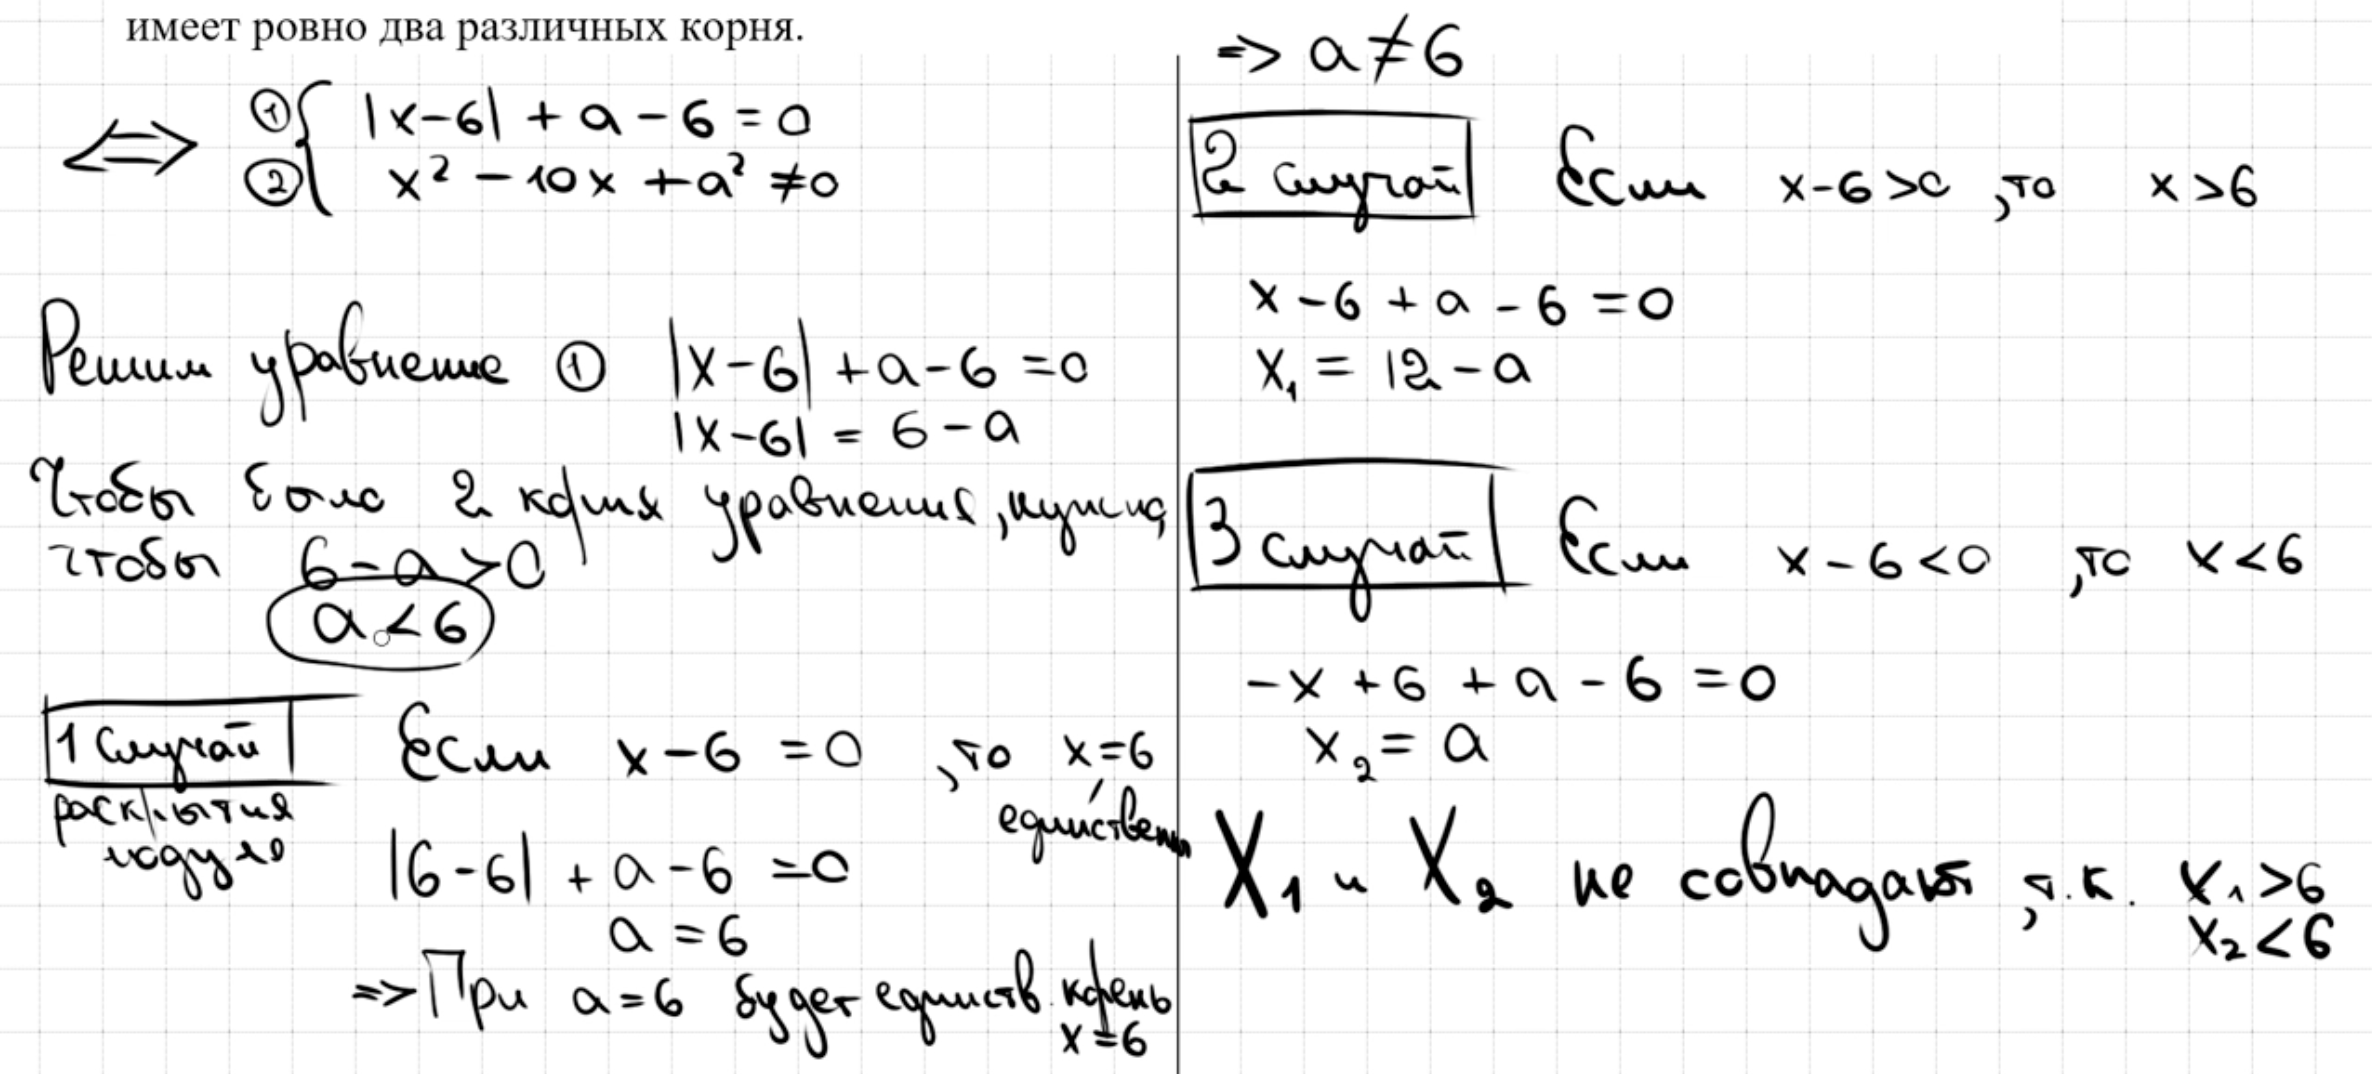 имеет ровно два различных корня.
⟺ ① { |x-6| + a - 6 = 0
② x² - 10x + a² ≠ 0
Решим уравнение ① |x-6| + a - 6 = 0
|x-6| = 6 - a
Чтобы было 2 корня уравнения, нужно,
чтобы 6 - a > 0
a < 6
1 случай Если x - 6 = 0, то x = 6
раскрытия единствен
модуля |6-6| + a - 6 = 0
a = 6
=> При a = 6 будет единств. корень
x = 6
=> a ≠ 6
2 случай Если x - 6 > 0, то x > 6
x - 6 + a - 6 = 0
x₁ = 12 - a
3 случай Если x - 6 < 0, то x < 6
-x + 6 + a - 6 = 0
x₂ = a
X₁ и X₂ не совпадают, т.к. x₁ > 6
x₂ < 6